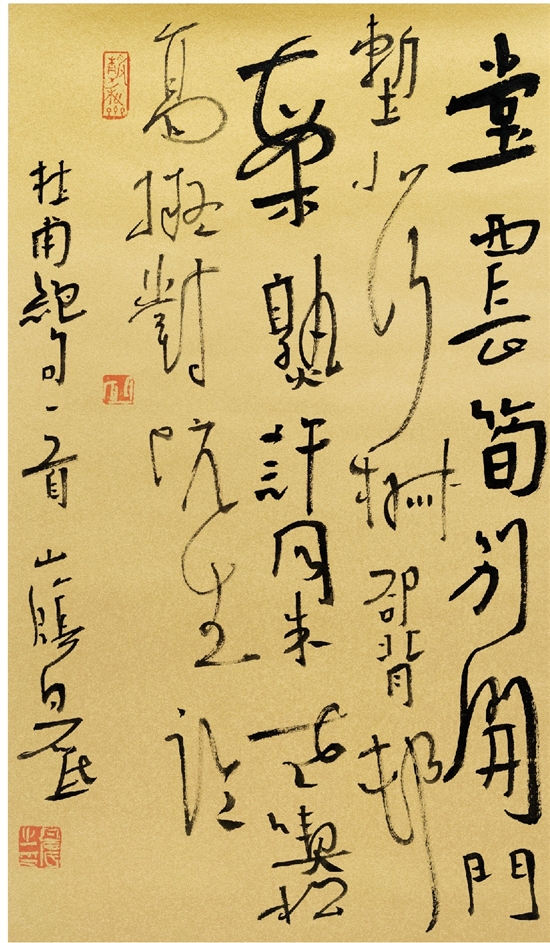 堂西長筍別開門
塹北行椒卻背邨
梅熟許同朱老喫松
高擬對阮生論
杜甫絕句一首 山陰白砥